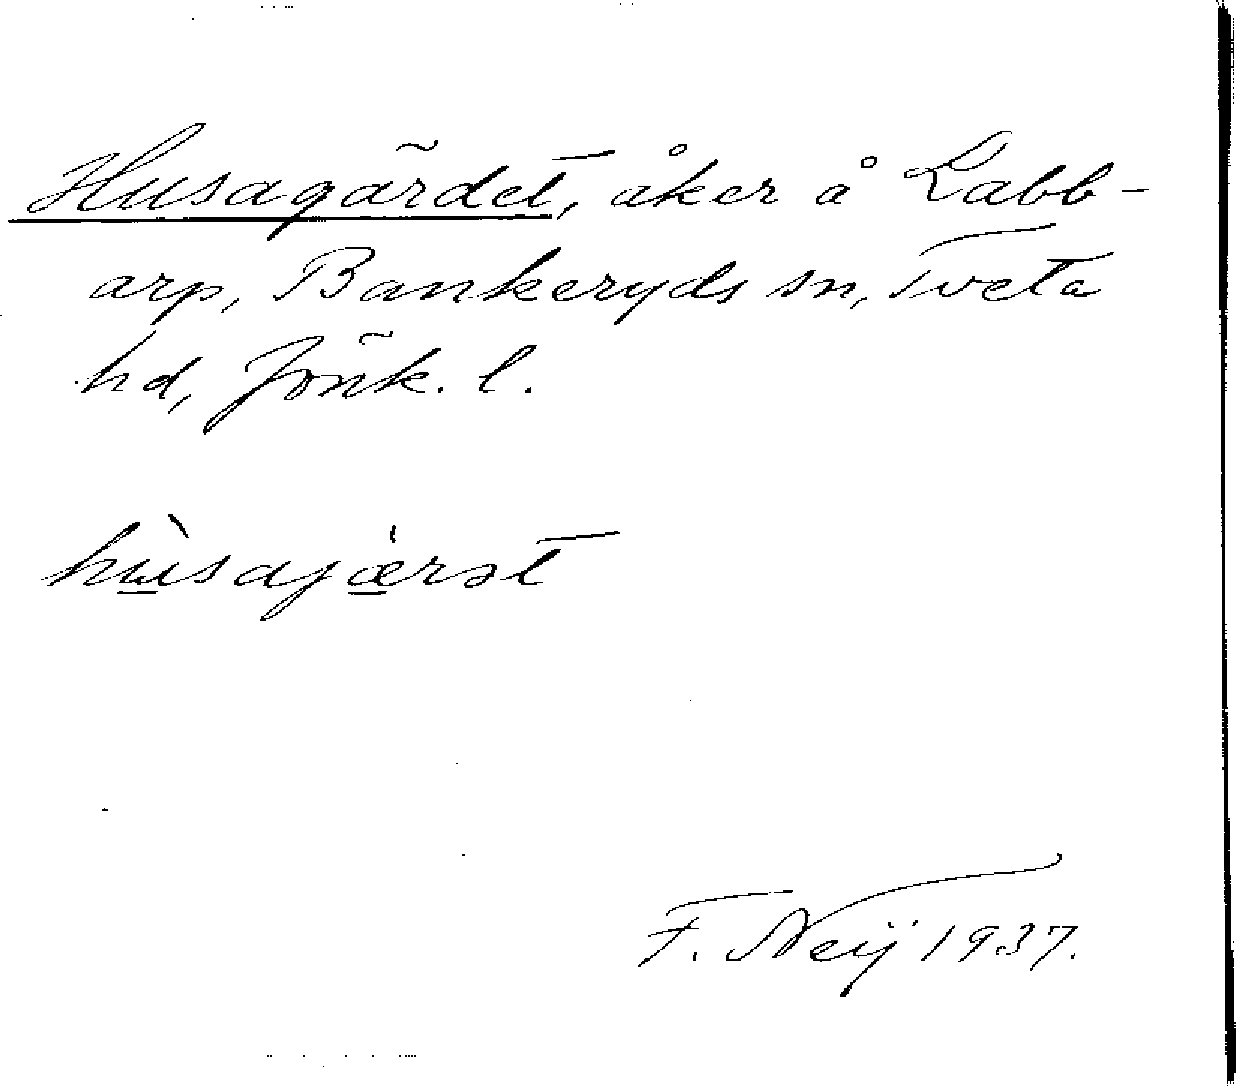 Husagärdet, åker å Labb-
arp, Bankeryds sn, Tveta
hd, Jönk. l.
hùsajæ̀rət
F. Neij 1937.